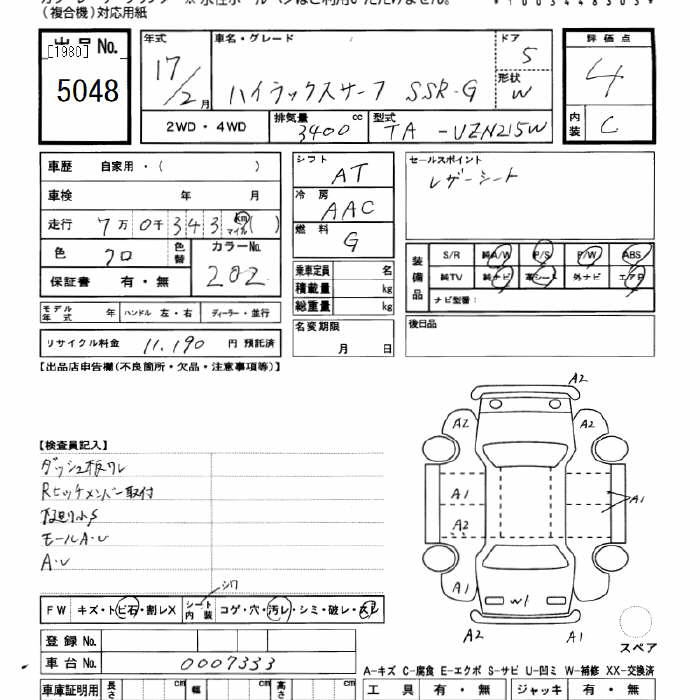 (複合機)対応用紙
出品No.
[1980]
5048
年式
17/2月
車名・グレード
ハイラックスサーフ SSR-G
ドア
5
形状
W
2WD・4WD
排気量
3400cc
型式
TA-VZN215W
評価点
4
内装
C
車歴 自家用・( )
車検 年 月
走行 7万0千343 km マイル ( )
色 クロ 色替 カラーNo. 202
保証書 有・無
モデル年式 年 ハンドル 左・右 ディーラー・並行
リサイクル料金 11,190 円 預託済
シフト AT
冷房 AAC
燃料 G
乗車定員 名
積載量 kg
総重量 kg
名変期限
月 日
セールスポイント
レザーシート
装備品
S/R 純A/W P/S P/W ABS
純TV 純ナビ 革シート 外ナビ エアB
ナビ型番:
後日品
【出品店申告欄(不良箇所・欠品・注意事項等)】
【検査員記入】
ダッシュ板ワレ
Rヒッチメンバー取付
下廻り小S
モールA・U
A・U
シワ
FW キズ・トビ石・割レX シート内装 コゲ・穴・汚レ・シミ・破レ・スレ
登録No.
車台No. 0007333
車庫証明用 長さ cm 幅 cm 高さ cm
A2
A2 A2
A1 A1
A2
A1 A1
W1
A2 A1
スペア
A-キズ C-腐食 E-エクボ S-サビ U-凹ミ W-補修 XX-交換済
工具 有・無 ジャッキ 有・無